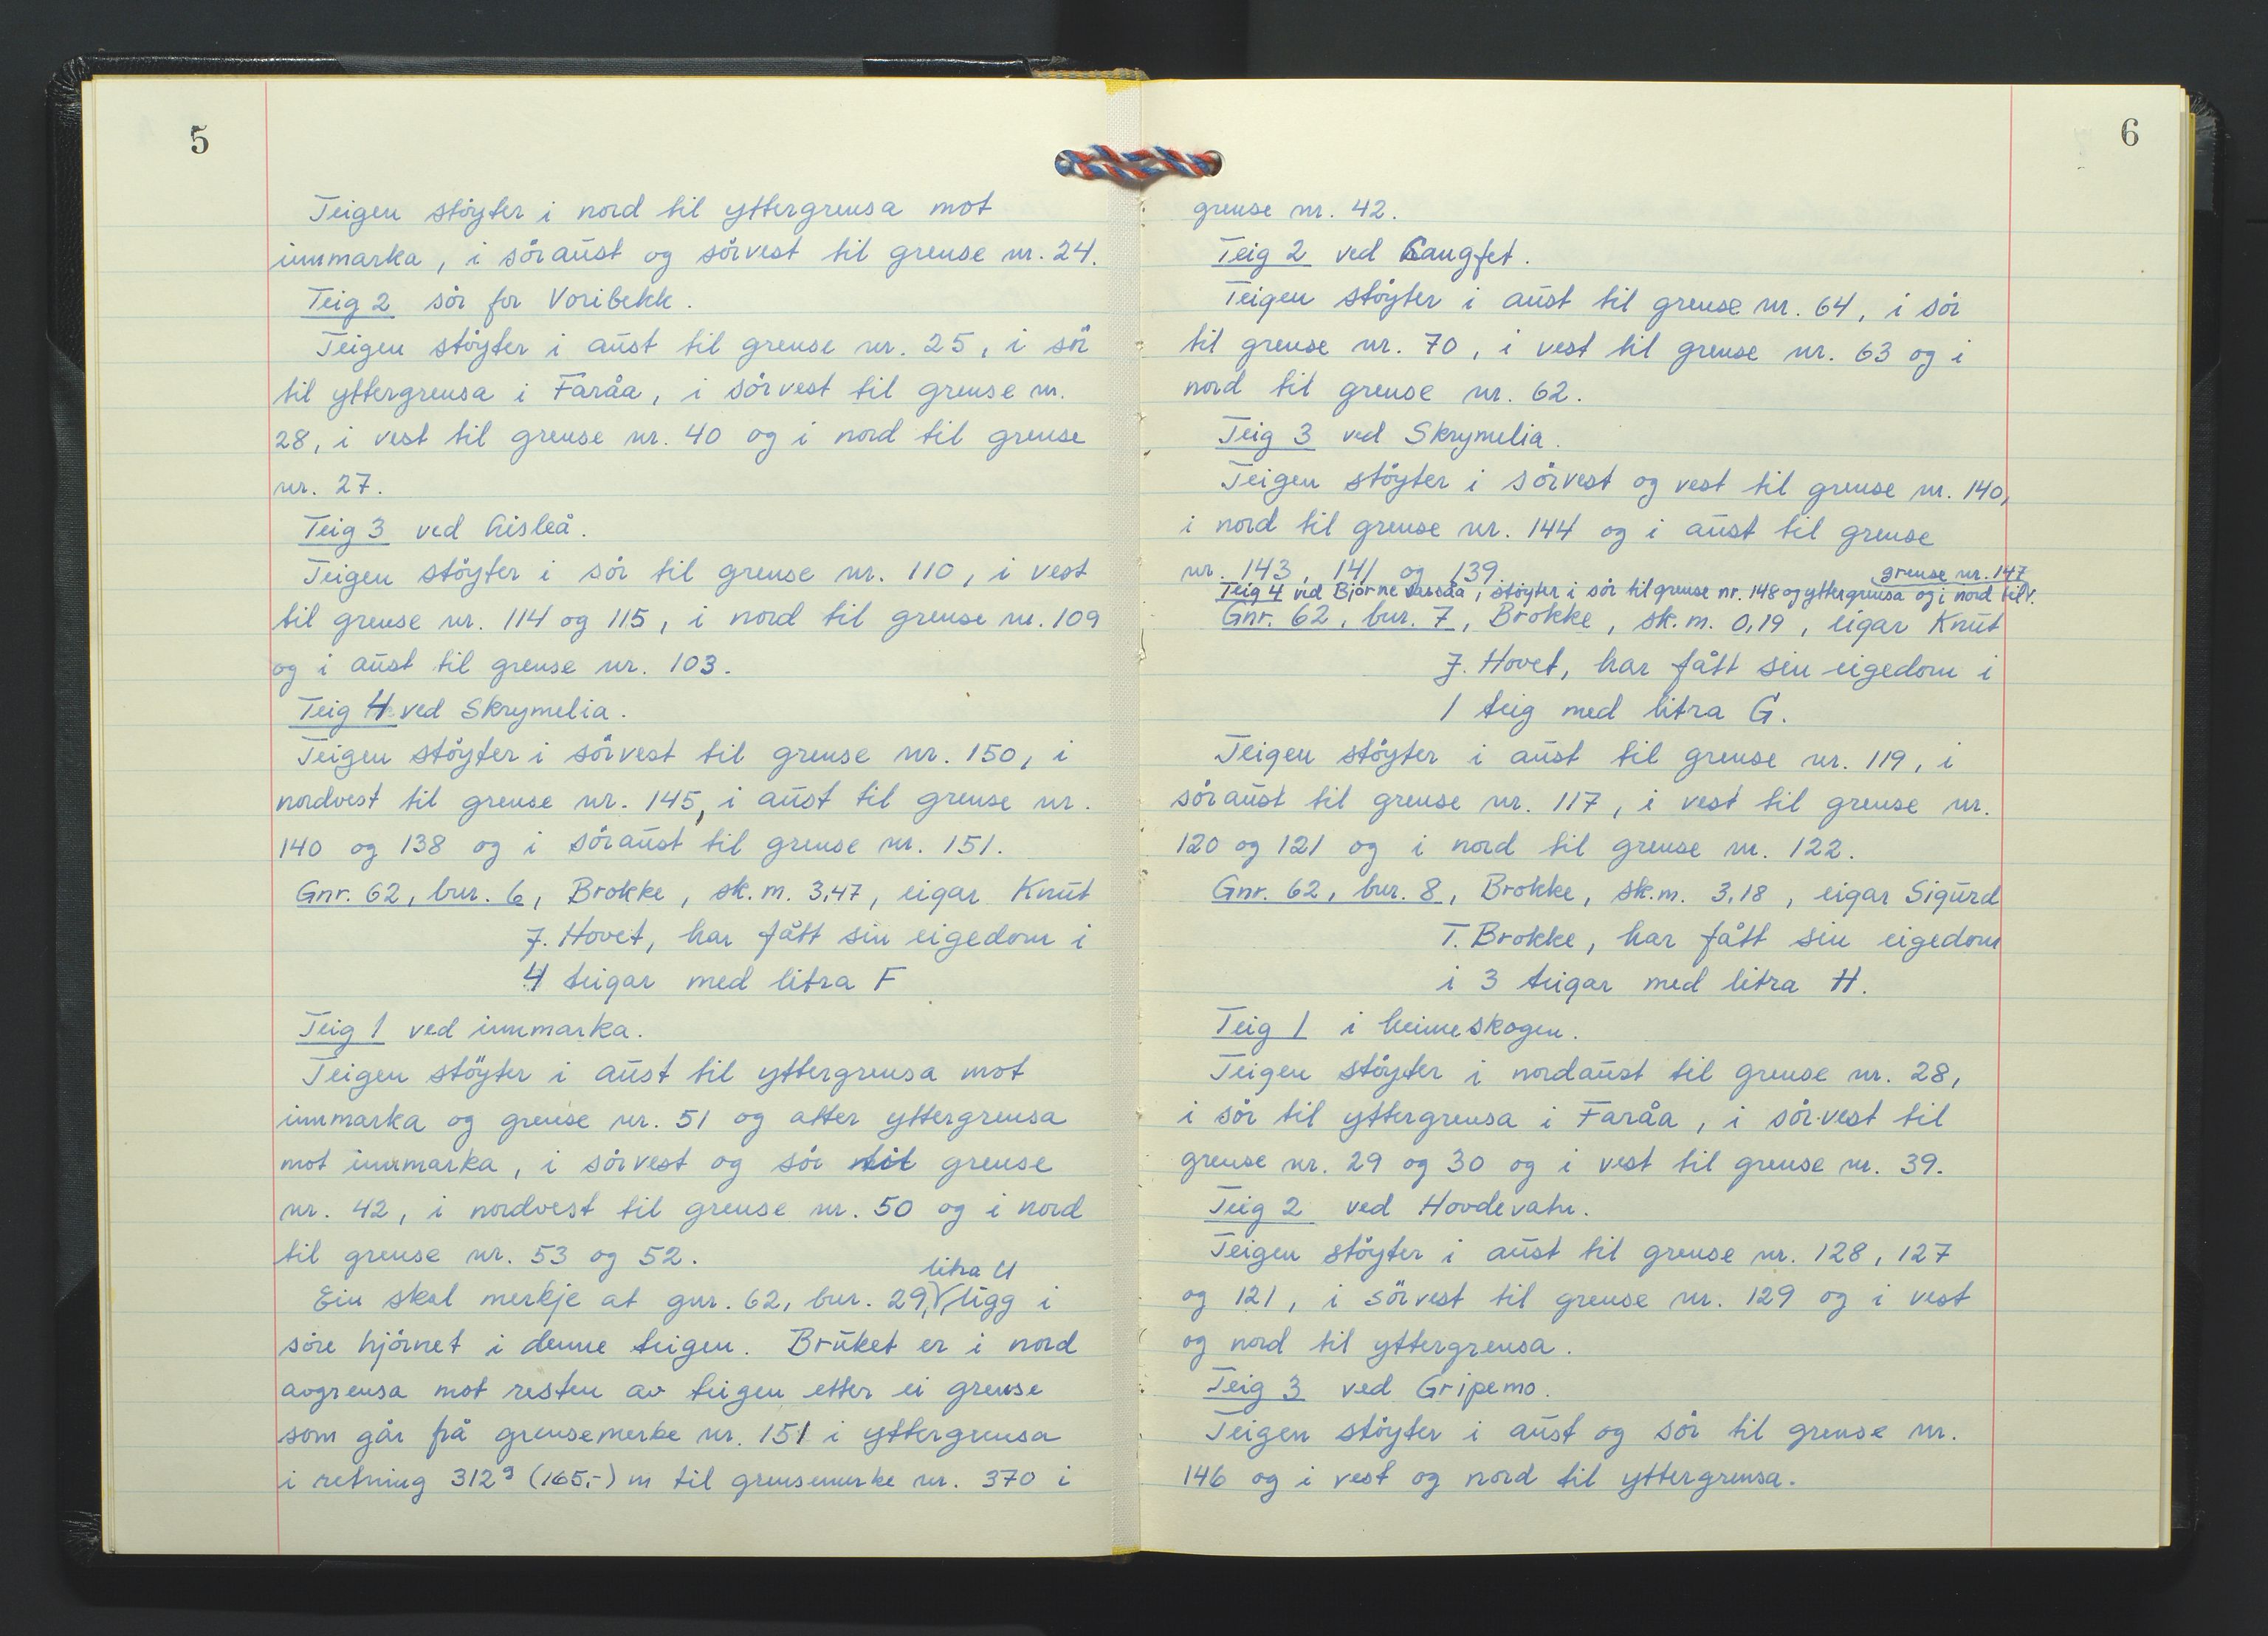 5
Teigen støyter i nord til yttergrensa mot
innmarka, i søraust og sørvest til grense nr. 24.
Teig 2 sør for Voribekk.
Teigen støyter i aust til grense nr. 25, i sør
til yttergrensa i Faråa, i sørvest til grense nr.
28, i vest til grense nr. 40 og i nord til grense
nr. 27.
Teig 3 ved Lisleå.
Teigen støyter i sør til grense nr. 110, i vest
til grense nr. 114 og 115, i nord til grense nr. 109
og i aust til grense nr. 103.
Teig 4 ved Skrymelia.
Teigen støyter i sørvest til grense nr. 150, i
nordvest til grense nr. 145, i aust til grense nr.
140 og 138 og i søraust til grense nr. 151.
Gnr. 62, bnr. 6, Brokke, sk.m. 3,47, eigar Knut
J. Hovet, har fått sin eigedom i
4 teigar med litra F
Teig 1 ved innmarka.
Teigen støyter i aust til yttergrensa mot
innmarka og grense nr. 51 og atter yttergrensa
mot innmarka, i sørvest og sør til grense
nr. 42, i nordvest til grense nr. 50 og i nord
til grense nr. 53 og 52.
litra U
Ein skal merkje at gnr. 62, bnr. 29, ligg i
søre hjørnet i denne teigen. Bruket er i nord
avgrensa mot resten av teigen etter ei grense
som går frå grensemerke nr. 151 i yttergrensa
i retning 312g (165,-) m til grensemerke nr. 370 i
6
grense nr. 42.
Teig 2 ved Langfet.
Teigen støyter i aust til grense nr. 64, i sør
til grense nr. 70, i vest til grense nr. 63 og i
nord til grense nr. 62.
Teig 3 ved Skrymelia.
Teigen støyter i sørvest og vest til grense nr. 140,
i nord til grense nr. 144 og i aust til grense
nr. 143, 141 og 139
grense nr. 147
Teig 4 ved Bjørne, støyter i sør til grense nr. 148 og yttergrensa og i nord til
Gnr. 62, bnr. 7, Brokke, sk.m. 0,19, eigar Knut
J. Hovet, har fått sin eigedom i
1 teig med litra G.
Teigen støyter i aust til grense nr. 119, i
søraust til grense nr. 117, i vest til grense nr.
120 og 121 og i nord til grense nr. 122.
Gnr. 62, bnr. 8, Brokke, sk.m. 3,18, eigar Sigurd
T. Brokke, har fått sin eigedom
i 3 teigar med litra H.
Teig 1 i heimeskogen.
Teigen støyter i nordaust til grense nr. 28,
i sør til yttergrensa i Faråa, i sørvest til
grense nr. 29 og 30 og i vest til grense nr. 39.
Teig 2 ved Hovdevatn.
Teigen støyter i aust til grense nr. 128, 127
og 121, i sørvest til grense nr. 129 og i vest
og nord til yttergrensa.
Teig 3 ved Gripemo.
Teigen støyter i aust og sør til grense nr.
146 og i vest og nord til yttergrensa.